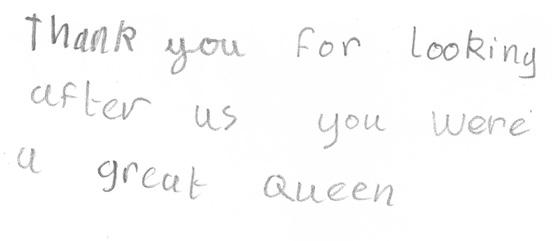 Thank you for looking
after us you were
a great Queen